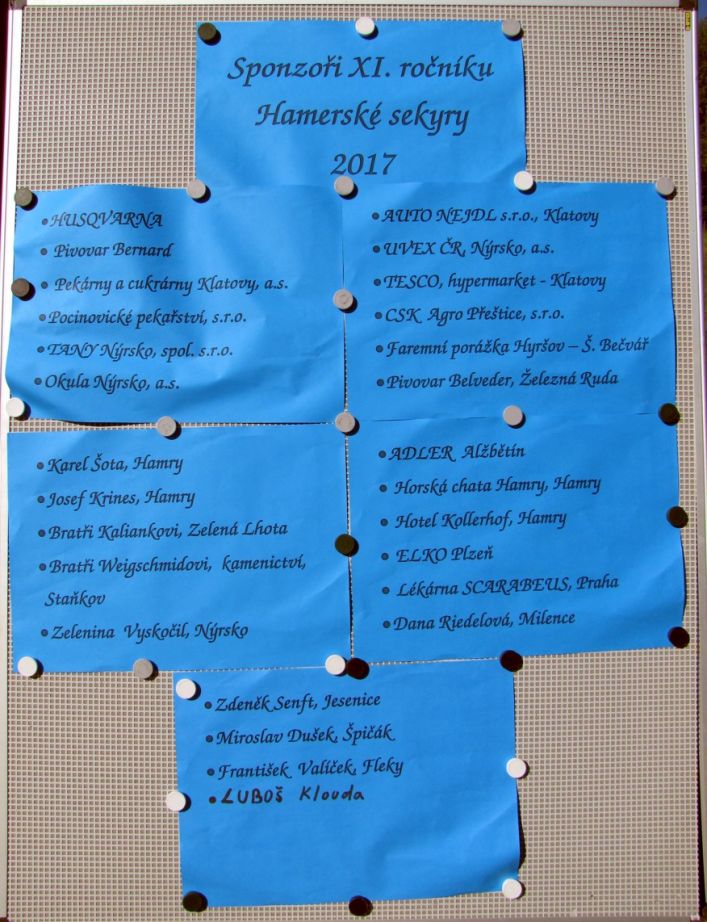 Sponzoři XI. ročníku
Hamerské sekyry
2017
•HUSQVARNA
• Pivovar Bernard
• Pekárny a cukrárny Klatovy, a.s.
•Pocinovické pekařství, s.r.o.
•TANY Nýrsko, spol. s.r.o.
•Okula Nýrsko, a.s.
•AUTO NEJDL s.r.o., Klatovy
•UVEX ČR, Nýrsko, a.s.
•TESCO, hypermarket - Klatovy
•CSK Agro Přeštice, s.r.o.
•Faremní porážka Hyršov – Š. Bečvář
•Pivovar Belveder, Železná Ruda
•Karel Šota, Hamry
•Josef Krines, Hamry
•Bratři Kaliankovi, Zelená Lhota
•Bratři Weigschmidovi, kamenictví,
Staňkov
•Zelenina Vyskočil, Nýrsko
•ADLER Alžbětín
• Horská chata Hamry, Hamry
• Hotel Kollerhof, Hamry
• ELKO Plzeň
• Lékárna SCARABEUS, Praha
•Dana Riedelová, Milence
•Zdeněk Senft, Jesenice
•Miroslav Dušek, Špičák
•František Valíček, Fleky
•LUBOŠ Klouda